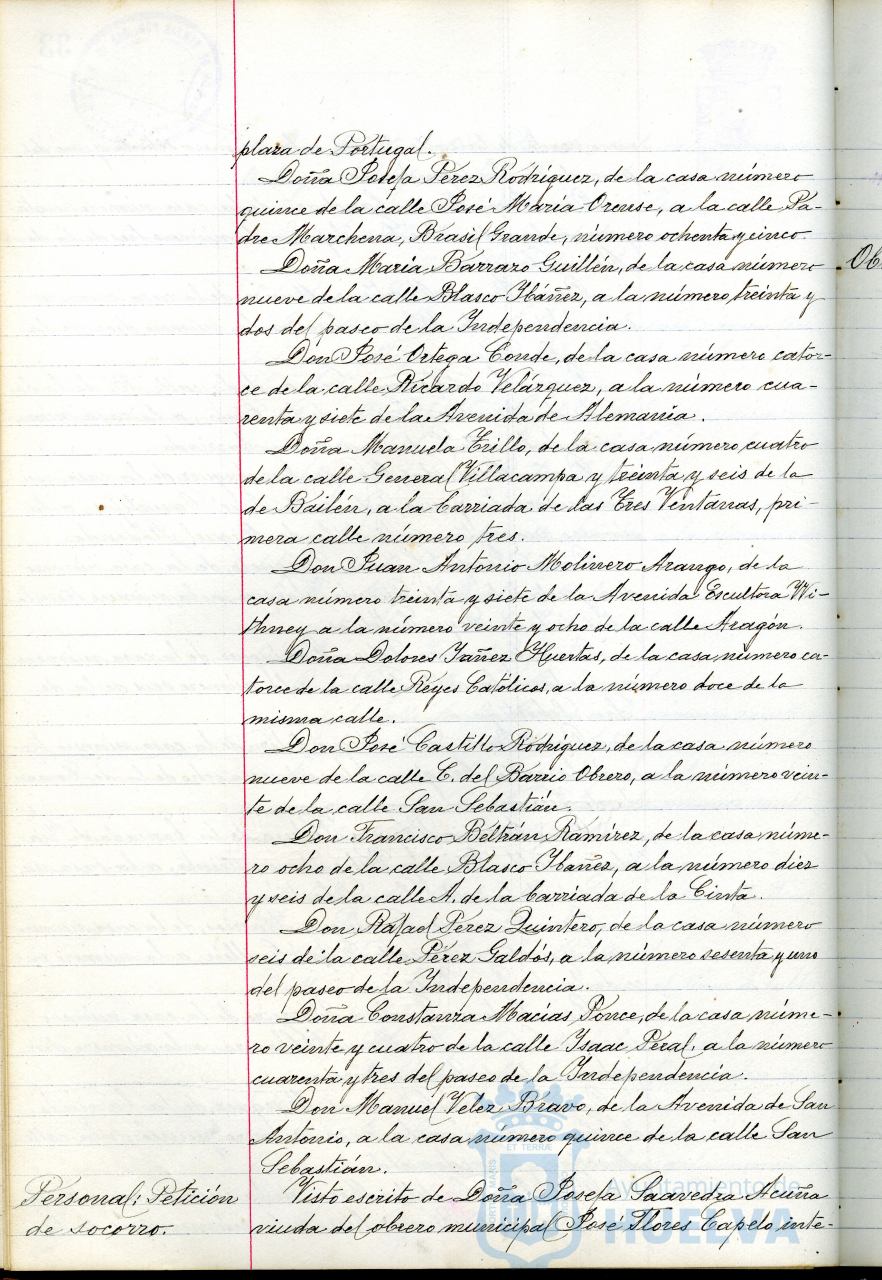 plaza de Portugal.
Doña Josefa Pérez Rodríguez, de la casa número
quince de la calle José María Orense, a la calle Pa-
dre Marchena, Brasil Grande, número ochenta y cinco.
Doña María Barrazo Guillén, de la casa número
Ob
nueve de la calle Blasco Ybáñez, a la número treinta y
dos del paseo de la Yndependencia.
Don José Ortega Conde, de la casa número cator-
ce de la calle Ricardo Velázquez, a la número cua-
renta y siete de la Avenida de Alemania.
Doña Manuela Trillo, de la casa número cuatro
de la calle General Villacampa y treinta y seis de la
de Bailén, a la barriada de las Tres Ventanas, pri-
mera calle número tres.
Don Juan Antonio Molinero Arango, de la
casa número treinta y siete de la Avenida Escultora Wi-
thney a la número veinte y ocho de la calle Aragón.
Doña Dolores Yañez Huertas, de la casa número ca-
torce de la calle Reyes Católicos, a la número doce de la
misma calle.
Don José Castillo Rodríguez, de la casa número
nueve de la calle C. del Barrio Obrero, a la número vein-
te de la calle San Sebastián.
Don Francisco Beltrán Ramírez, de la casa núme-
ro ocho de la calle Blasco Ybañez, a la número diez
y seis de la calle A. de la barriada de la Cinta.
Don Rafael Pérez Quintero, de la casa número
seis de la calle Pérez Galdós, a la número sesenta y uno
del paseo de la Yndependencia.
Doña Constanza Macías Ponce, de la casa núme-
ro veinte y cuatro de la calle Ysaac Peral, a la número
cuarenta y tres del paseo de la Yndependencia.
Don Manuel Velez Bravo, de la Avenida de San
Antonio, a la casa número quince de la calle San
Sebastián.
Personal: Petición
de socorro.
Visto escrito de Doña Josefa Saavedra Acuña
viuda del obrero municipal José Flores Capelo inte-
Ayuntamiento de
HUELVA